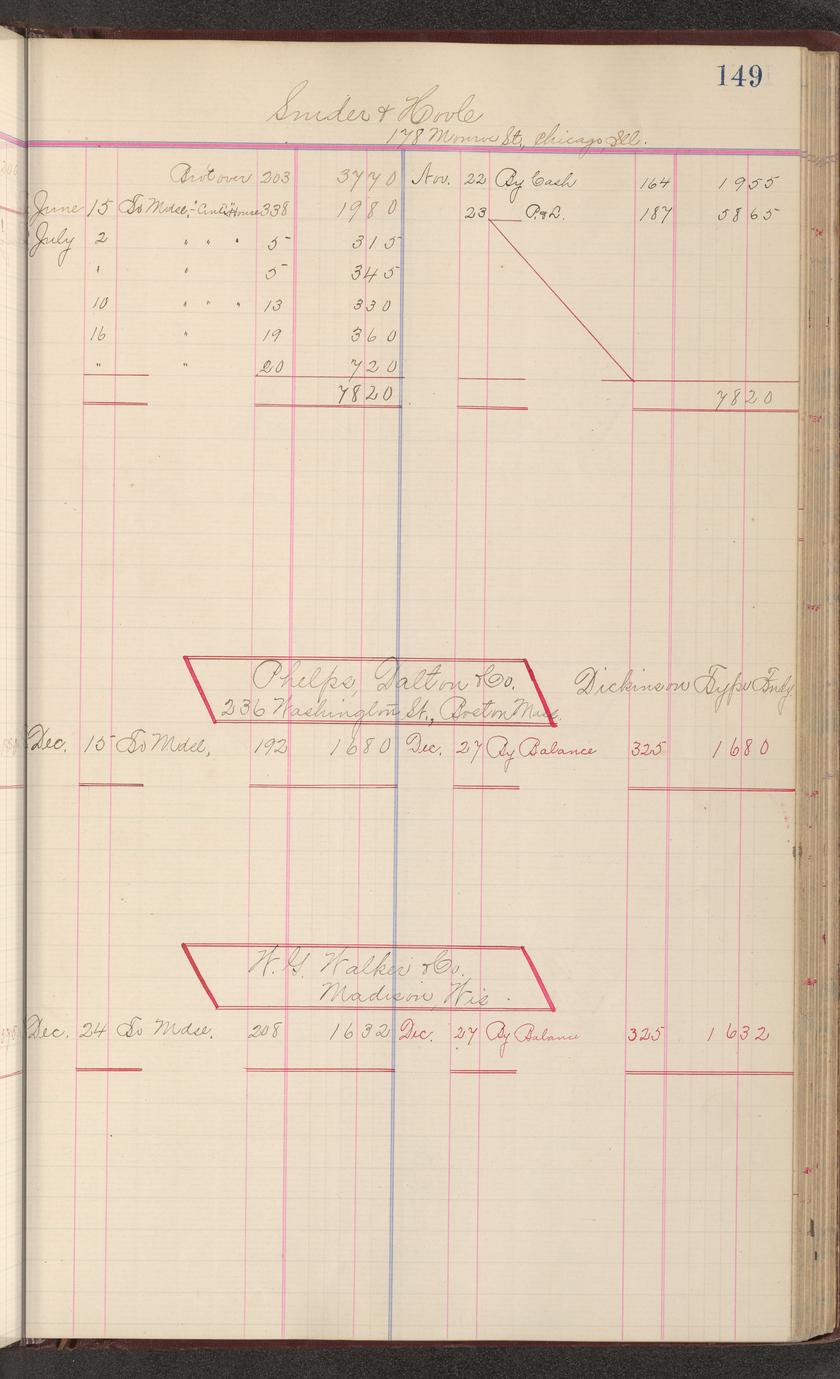 149
Snider & Hoole
178 Monroe St., Chicago, Ill.
Bro't over 203 37 70 Nov. 22 By Cash 164 19 55
June 15 To Mdse, 338 19 80 23 P. & L. 187 58 65
July 2 " " " 5 3 15
" " 5 3 45
10 " " " 13 3 30
16 " 19 3 60
" " 20 7 20
78 20 78 20
Phelps, Dalton & Co. Dickinson Type Fndy
236 Washington St., Boston Mass.
Dec. 15 To Mdse, 192 16 80 Dec. 27 By Balance 325 16 80
W. G. Walker & Co.
Madison, Wis.
Dec. 24 To Mdse. 208 16 32 Dec. 27 By Balance 325 16 32